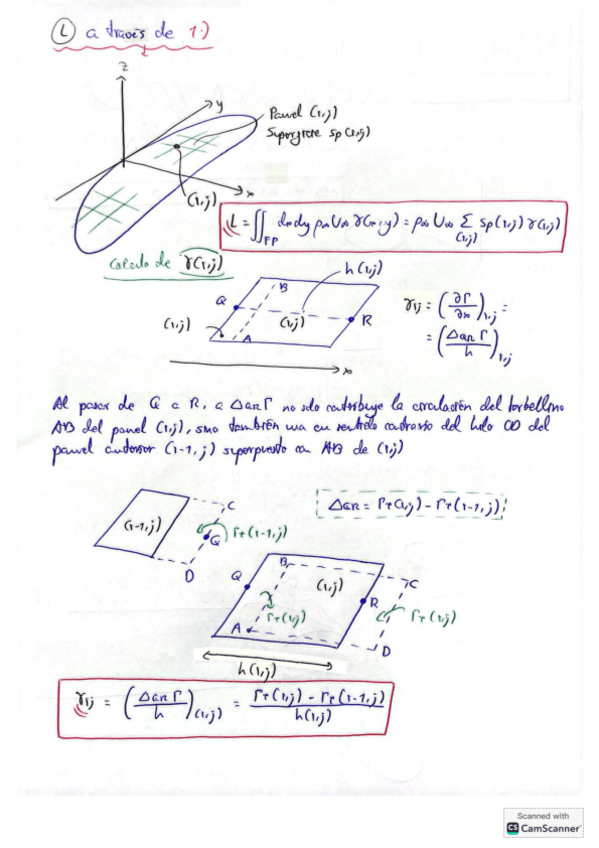 (L) a través de 1·)
z
y
Panel (i,j)
Superficie sp(i,j)
(i,j)
x
L = ∬FP dx dy ρ∞ U∞ γ(x,y) = ρ∞ U∞ Σ(i,j) Sp(i,j) γ(i,j)
Calculo de γ(i,j)
h(i,j)
B
Q
(i,j)
(i,j)
R
A
x
γij = (∂Γ/∂x)i,j =
= (ΔQR Γ/h)i,j
Al pasar de Q a R, a ΔQRΓ no solo contribuye la circulación del torbellino
AB del panel (i,j), sino también una en sentido contrario del hilo CD del
panel anterior (i-1,j) superpuesto con AB de (i,j)
(i-1,j)
C
Q
ΓT(i-1,j)
D
ΔQR = ΓT(i,j) - ΓT(i-1,j)
B
Q
(i,j)
C
R
ΓT(i,j)
ΓT(i,j)
A
D
h(i,j)
γij = (ΔQR Γ/h)(i,j) = (ΓT(i,j) - ΓT(i-1,j))/h(i,j)
Scanned with
CS CamScanner